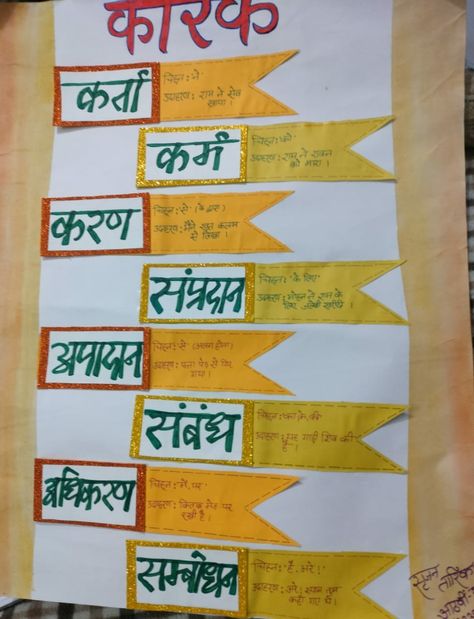 कारक
कर्ता
चिह्न: 'ने'
उदाहरण: राम ने सेब
खाया।
कर्म
चिह्न: 'को'
उदाहरण: राम ने रावन
को मारा।
करण
चिह्न: 'से' (के द्वारा)
उदाहरण: मैंने कलम
से लिखा।
संप्रदान
चिह्न: 'के लिए'
उदाहरण: मोहन ने राम के
लिए
अपादान
चिह्न: 'से' (अलग होना)
उदाहरण: पत्ता पेड़ से गिर
गया।
संबंध
चिह्न: का, के, की
उदाहरण: यह गाड़ी शिव की
है।
अधिकरण
चिह्न: 'में, पर'
उदाहरण: किताब मेज पर
रखी है।
सम्बोधन
चिह्न: 'हे, अरे!'
उदाहरण: अरे! तुम
कहाँ गए थे।